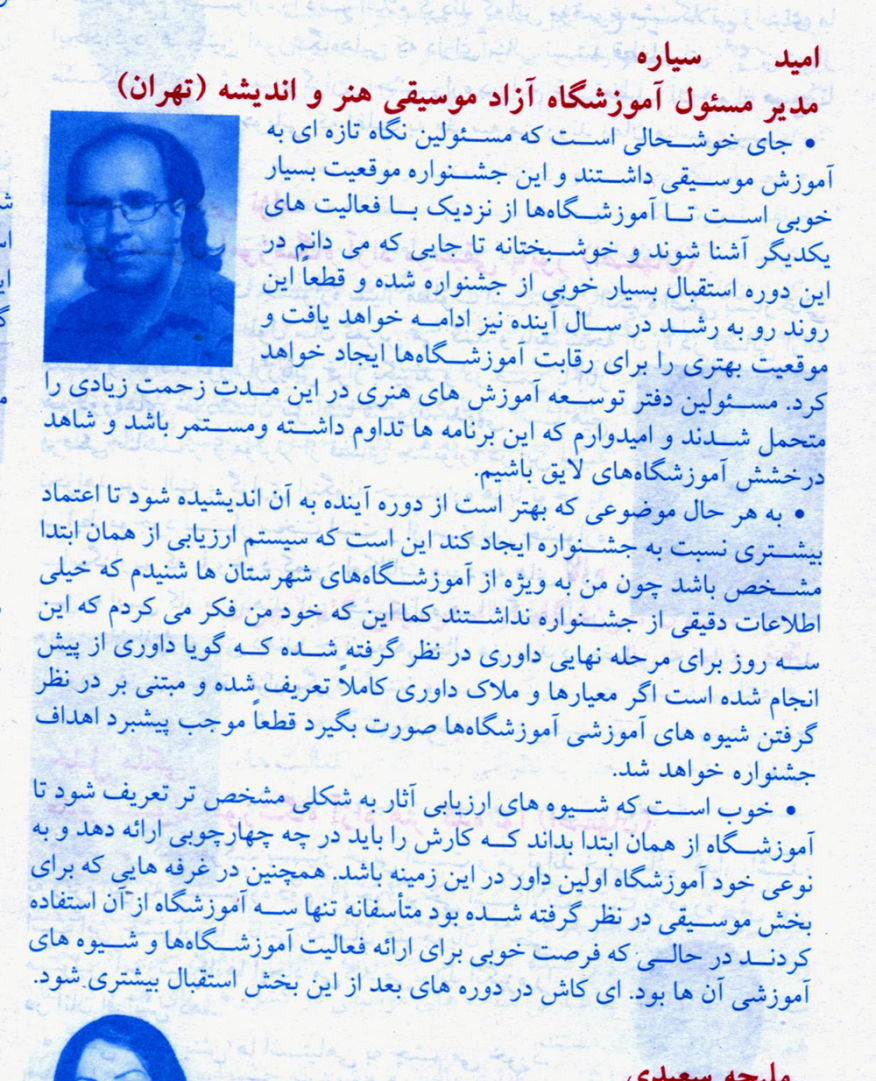 امید سیاره
مدیر مسئول آموزشگاه آزاد موسیقی هنر و اندیشه (تهران)
• جای خوشحالی است که مسئولین نگاه تازه ای به
آموزش موسیقی داشتند و این جشنواره موقعیت بسیار
خوبی است تا آموزشگاه‌ها از نزدیک با فعالیت های
یکدیگر آشنا شوند و خوشبختانه تا جایی که می دانم در
این دوره استقبال بسیار خوبی از جشنواره شده و قطعاً این
روند رو به رشد در سال آینده نیز ادامه خواهد یافت و
موقعیت بهتری را برای رقابت آموزشگاه‌ها ایجاد خواهد
کرد. مسئولین دفتر توسعه آموزش های هنری در این مدت زحمت زیادی را
متحمل شدند و امیدوارم که این برنامه ها تداوم داشته ومستمر باشد و شاهد
درخشش آموزشگاه‌های لایق باشیم.
• به هر حال موضوعی که بهتر است از دوره آینده به آن اندیشیده شود تا اعتماد
بیشتری نسبت به جشنواره ایجاد کند این است که سیستم ارزیابی از همان ابتدا
مشخص باشد چون من به ویژه از آموزشگاه‌های شهرستان ها شنیدم که خیلی
اطلاعات دقیقی از جشنواره نداشتند کما این که خود من فکر می کردم که این
سه روز برای مرحله نهایی داوری در نظر گرفته شده که گویا داوری از پیش
انجام شده است اگر معیارها و ملاک داوری کاملاً تعریف شده و مبتنی بر در نظر
گرفتن شیوه های آموزشی آموزشگاه‌ها صورت بگیرد قطعاً موجب پیشبرد اهداف
جشنواره خواهد شد.
• خوب است که شیوه های ارزیابی آثار به شکلی مشخص تر تعریف شود تا
آموزشگاه از همان ابتدا بداند که کارش را باید در چه چهارچوبی ارائه دهد و به
نوعی خود آموزشگاه اولین داور در این زمینه باشد. همچنین در غرفه هایی که برای
بخش موسیقی در نظر گرفته شده بود متأسفانه تنها سه آموزشگاه از آن استفاده
کردند در حالی که فرصت خوبی برای ارائه فعالیت آموزشگاه‌ها و شیوه های
آموزشی آن ها بود. ای کاش در دوره های بعد از این بخش استقبال بیشتری شود.
ملیحه سعیدی